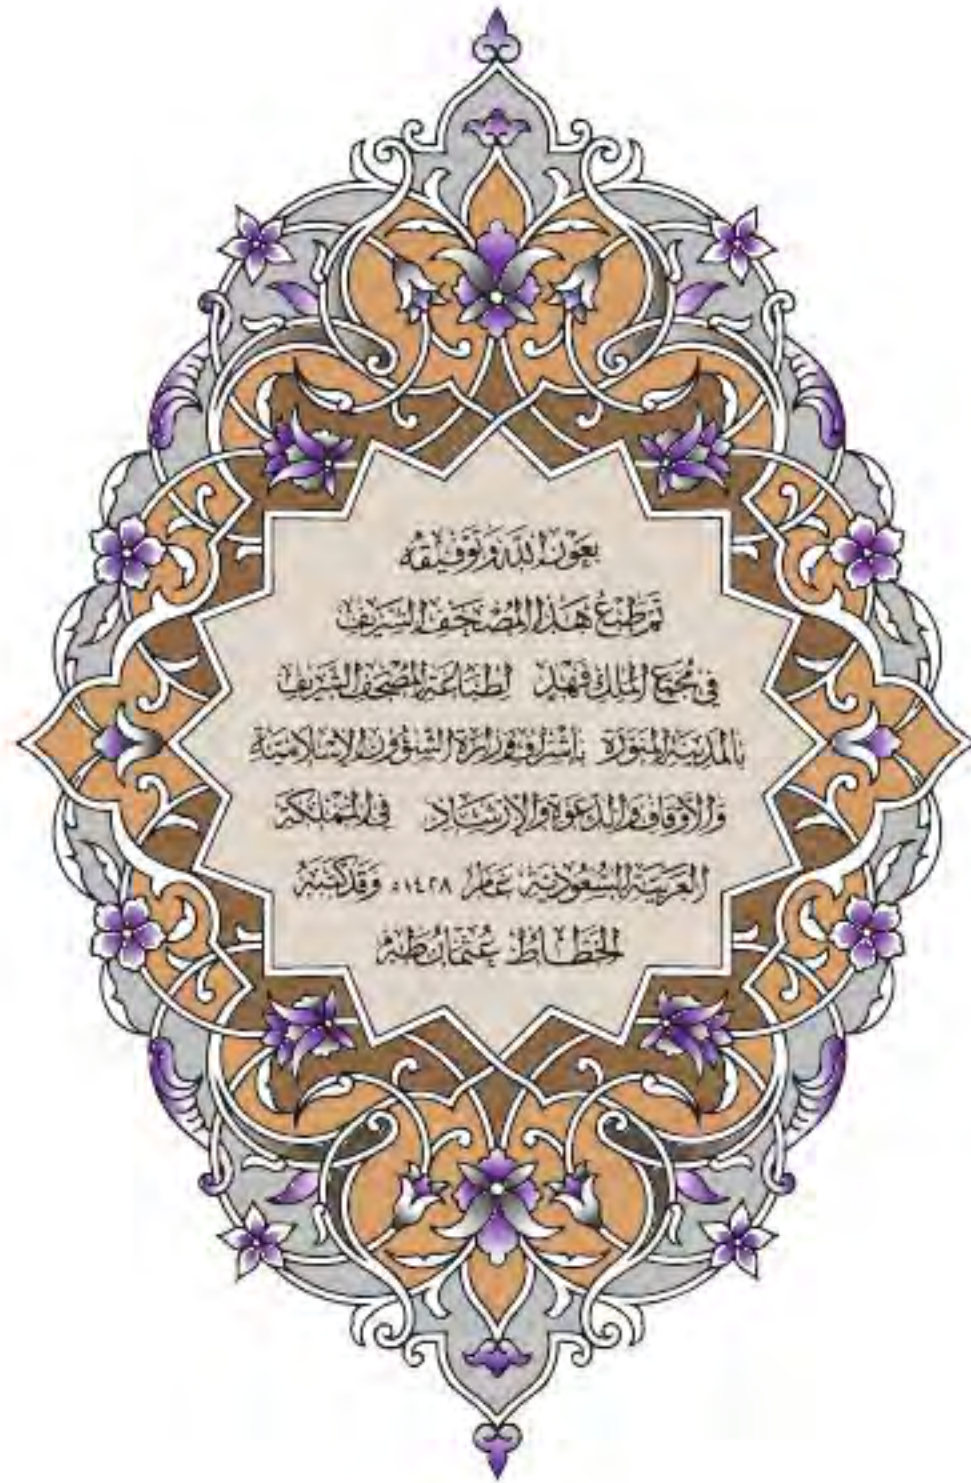 بِعَوْنِ اللَّهِ وَتَوْفِيقِهِ
تَمَّ طَبْعُ هَذَا المُصْحَفِ الشَّرِيفِ
فِي مُجَمَّعِ المَلِك فَهْد لِطِبَاعَةِ المُصْحَفِ الشَّرِيفِ
بِالمَدِينَةِ المُنَوَّرَةِ بِإِشْرَافِ وِزَارَةِ الشُّؤُونِ الإِسْلَامِيَّةِ
وَالأَوْقَافِ وَالدَّعْوَةِ وَالإِرْشَادِ فِي المَمْلَكَةِ
العَرَبِيَّةِ السُّعُودِيَّةِ عَامَ ١٤٢٨ه وَقَدْ كَتَبَهُ
الخَطَّاطُ عُثْمَان طَه